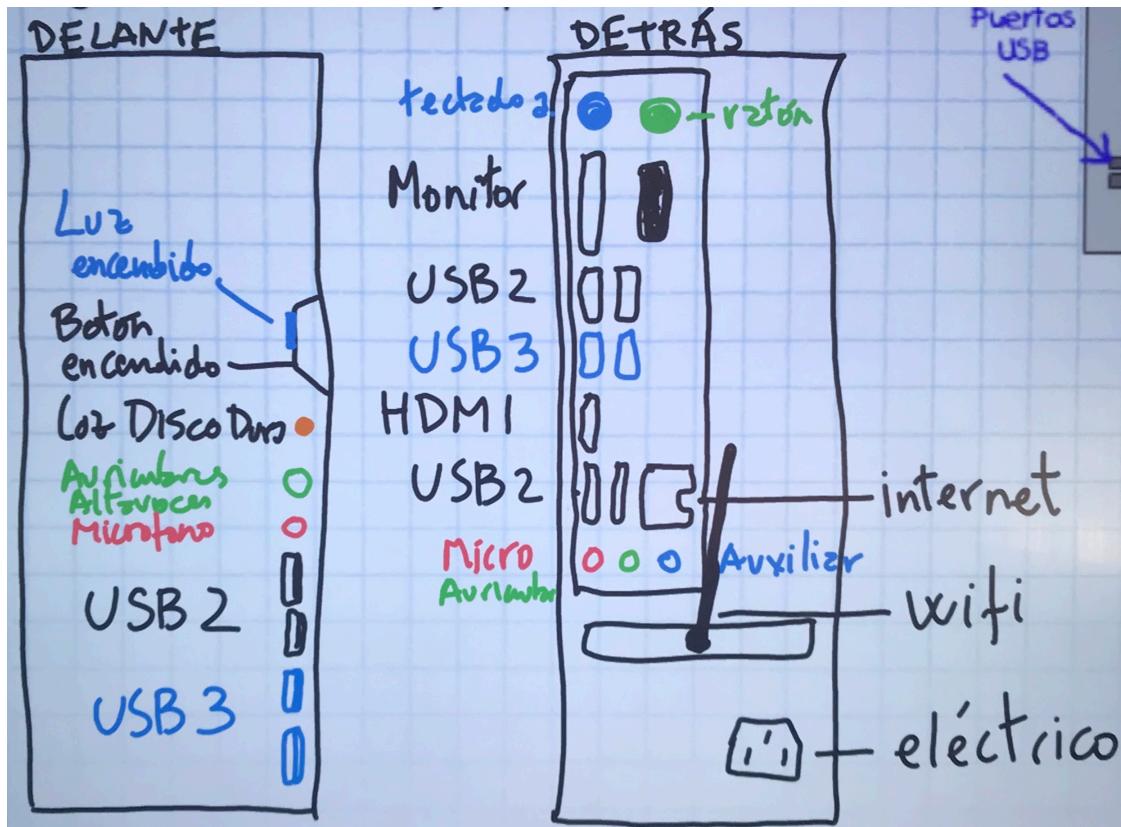 DELANTE
Luz
encendido
Boton
encendido
Luz Disco Duro
Auriculares
Altavoces
Microfono
USB 2
USB 3
DETRÁS
teclado
ratón
Monitor
USB 2
USB 3
HDMI
USB 2
internet
Micro
Auxiliar
Auricular
wifi
eléctrico
Puertos
USB